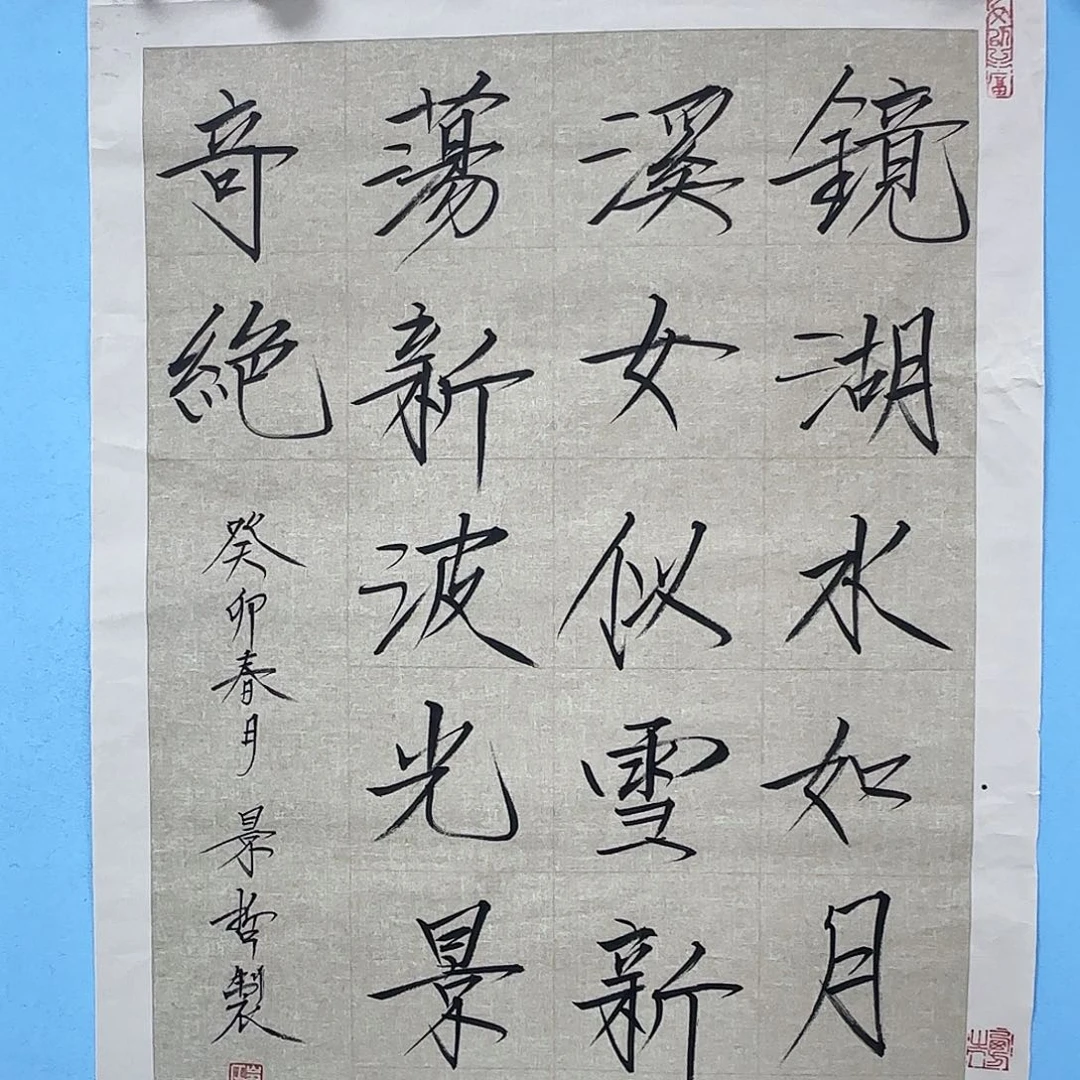 鏡湖水如月
溪女似雪新
蕩新波光景
竒絶
癸卯春月 景哲製